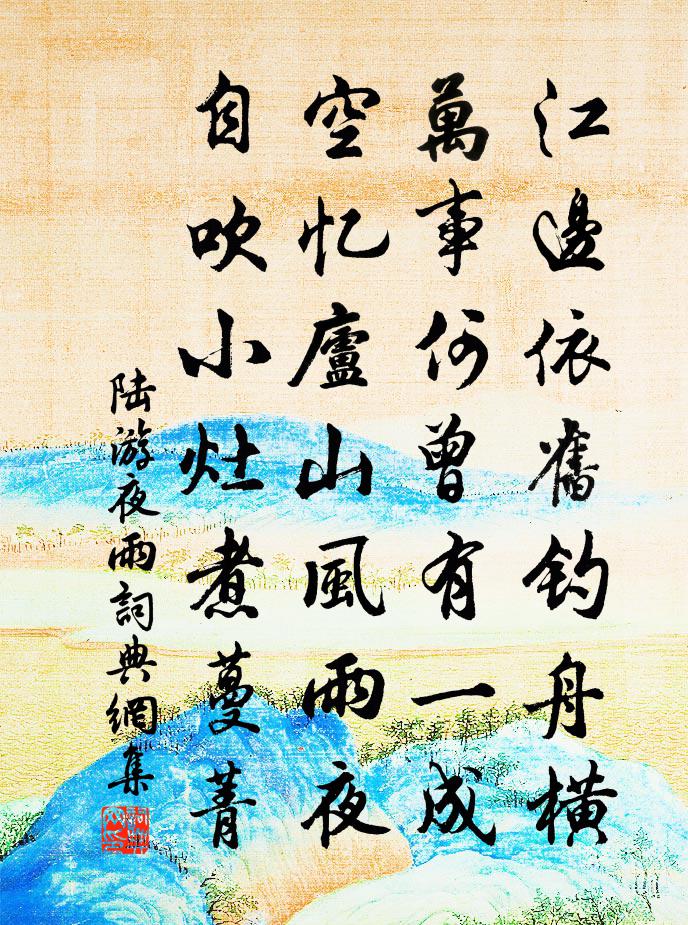 江邊依舊钓舟橫
萬事何曾有一成
空忆廬山風雨夜
自吹小灶煮蔓菁
陆游夜雨詞典網集